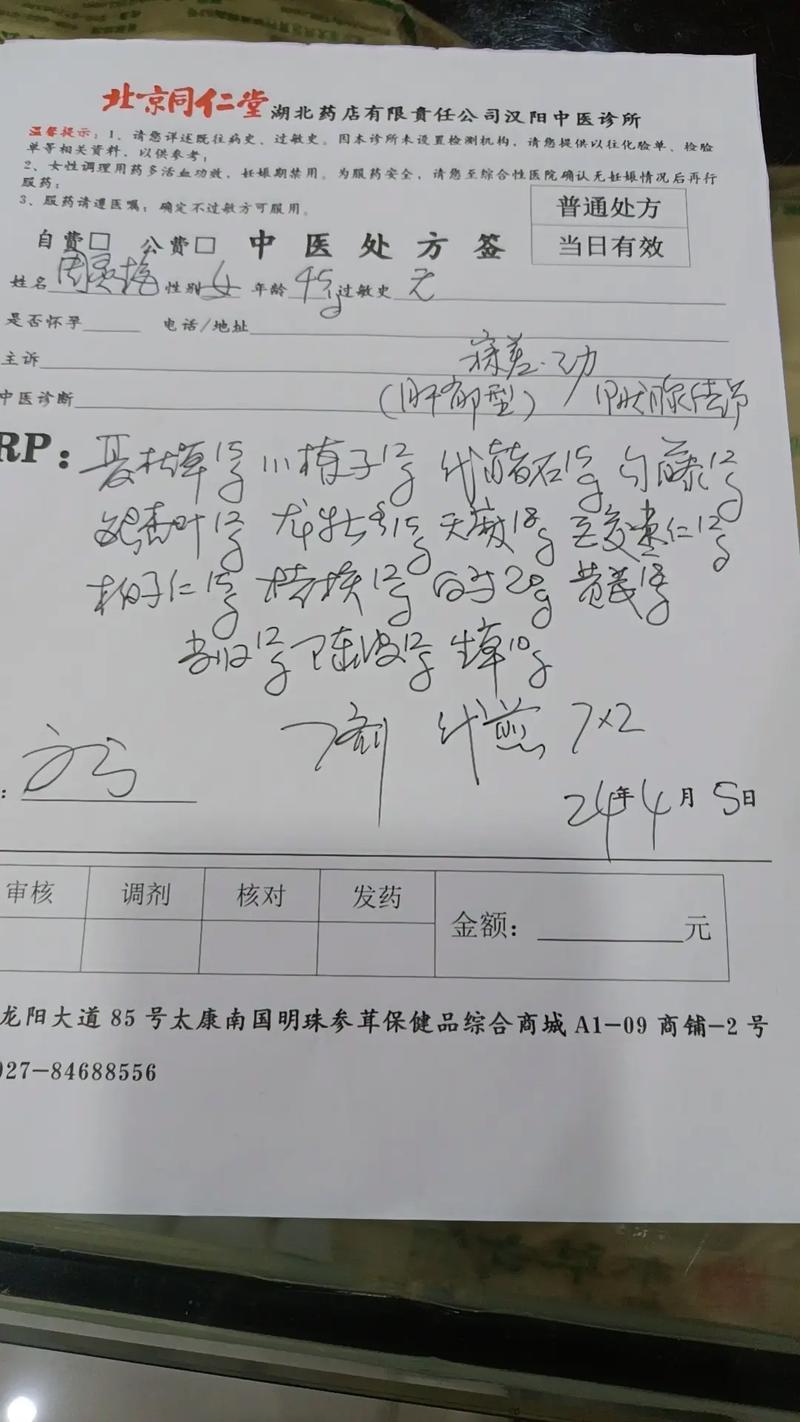 北京同仁堂湖北药店有限責任公司汉阳中医诊所
温馨提示：1、请您详述既往病史、过敏史。因本诊所未设置检测机构，请您提供以往化验单、检验
单等相关资料，以供参考；
2、女性调理用药多活血功效，妊娠期禁用。为服药安全，请您至综合性医院确认无妊娠情况后再行
服药；
3、服药请遵医嘱；确定不过敏方可服用。
普通处方
自费□ 公费□ 中医处方签
当日有效
姓名 性别 女 年龄 45 过敏史 无
是否怀孕 电话/地址
主诉 寐差
中医诊断 (肝郁型) 甲状腺结节
RP：夏枯草15g 川楝子12g 代赭石15g 勾藤12g
银杏叶12g 龙牡各15g 天麻18g 炒枣仁12g
柏子仁15g 12g 白芍20g 黄芪18g
当归12g 陈皮12g 生草10g
7剂 代煎 7×2
24年4月5日
审核 调剂 核对 发药
金额： 元
龙阳大道85号太康南国明珠参茸保健品综合商城A1-09商铺-2号
027-84688556